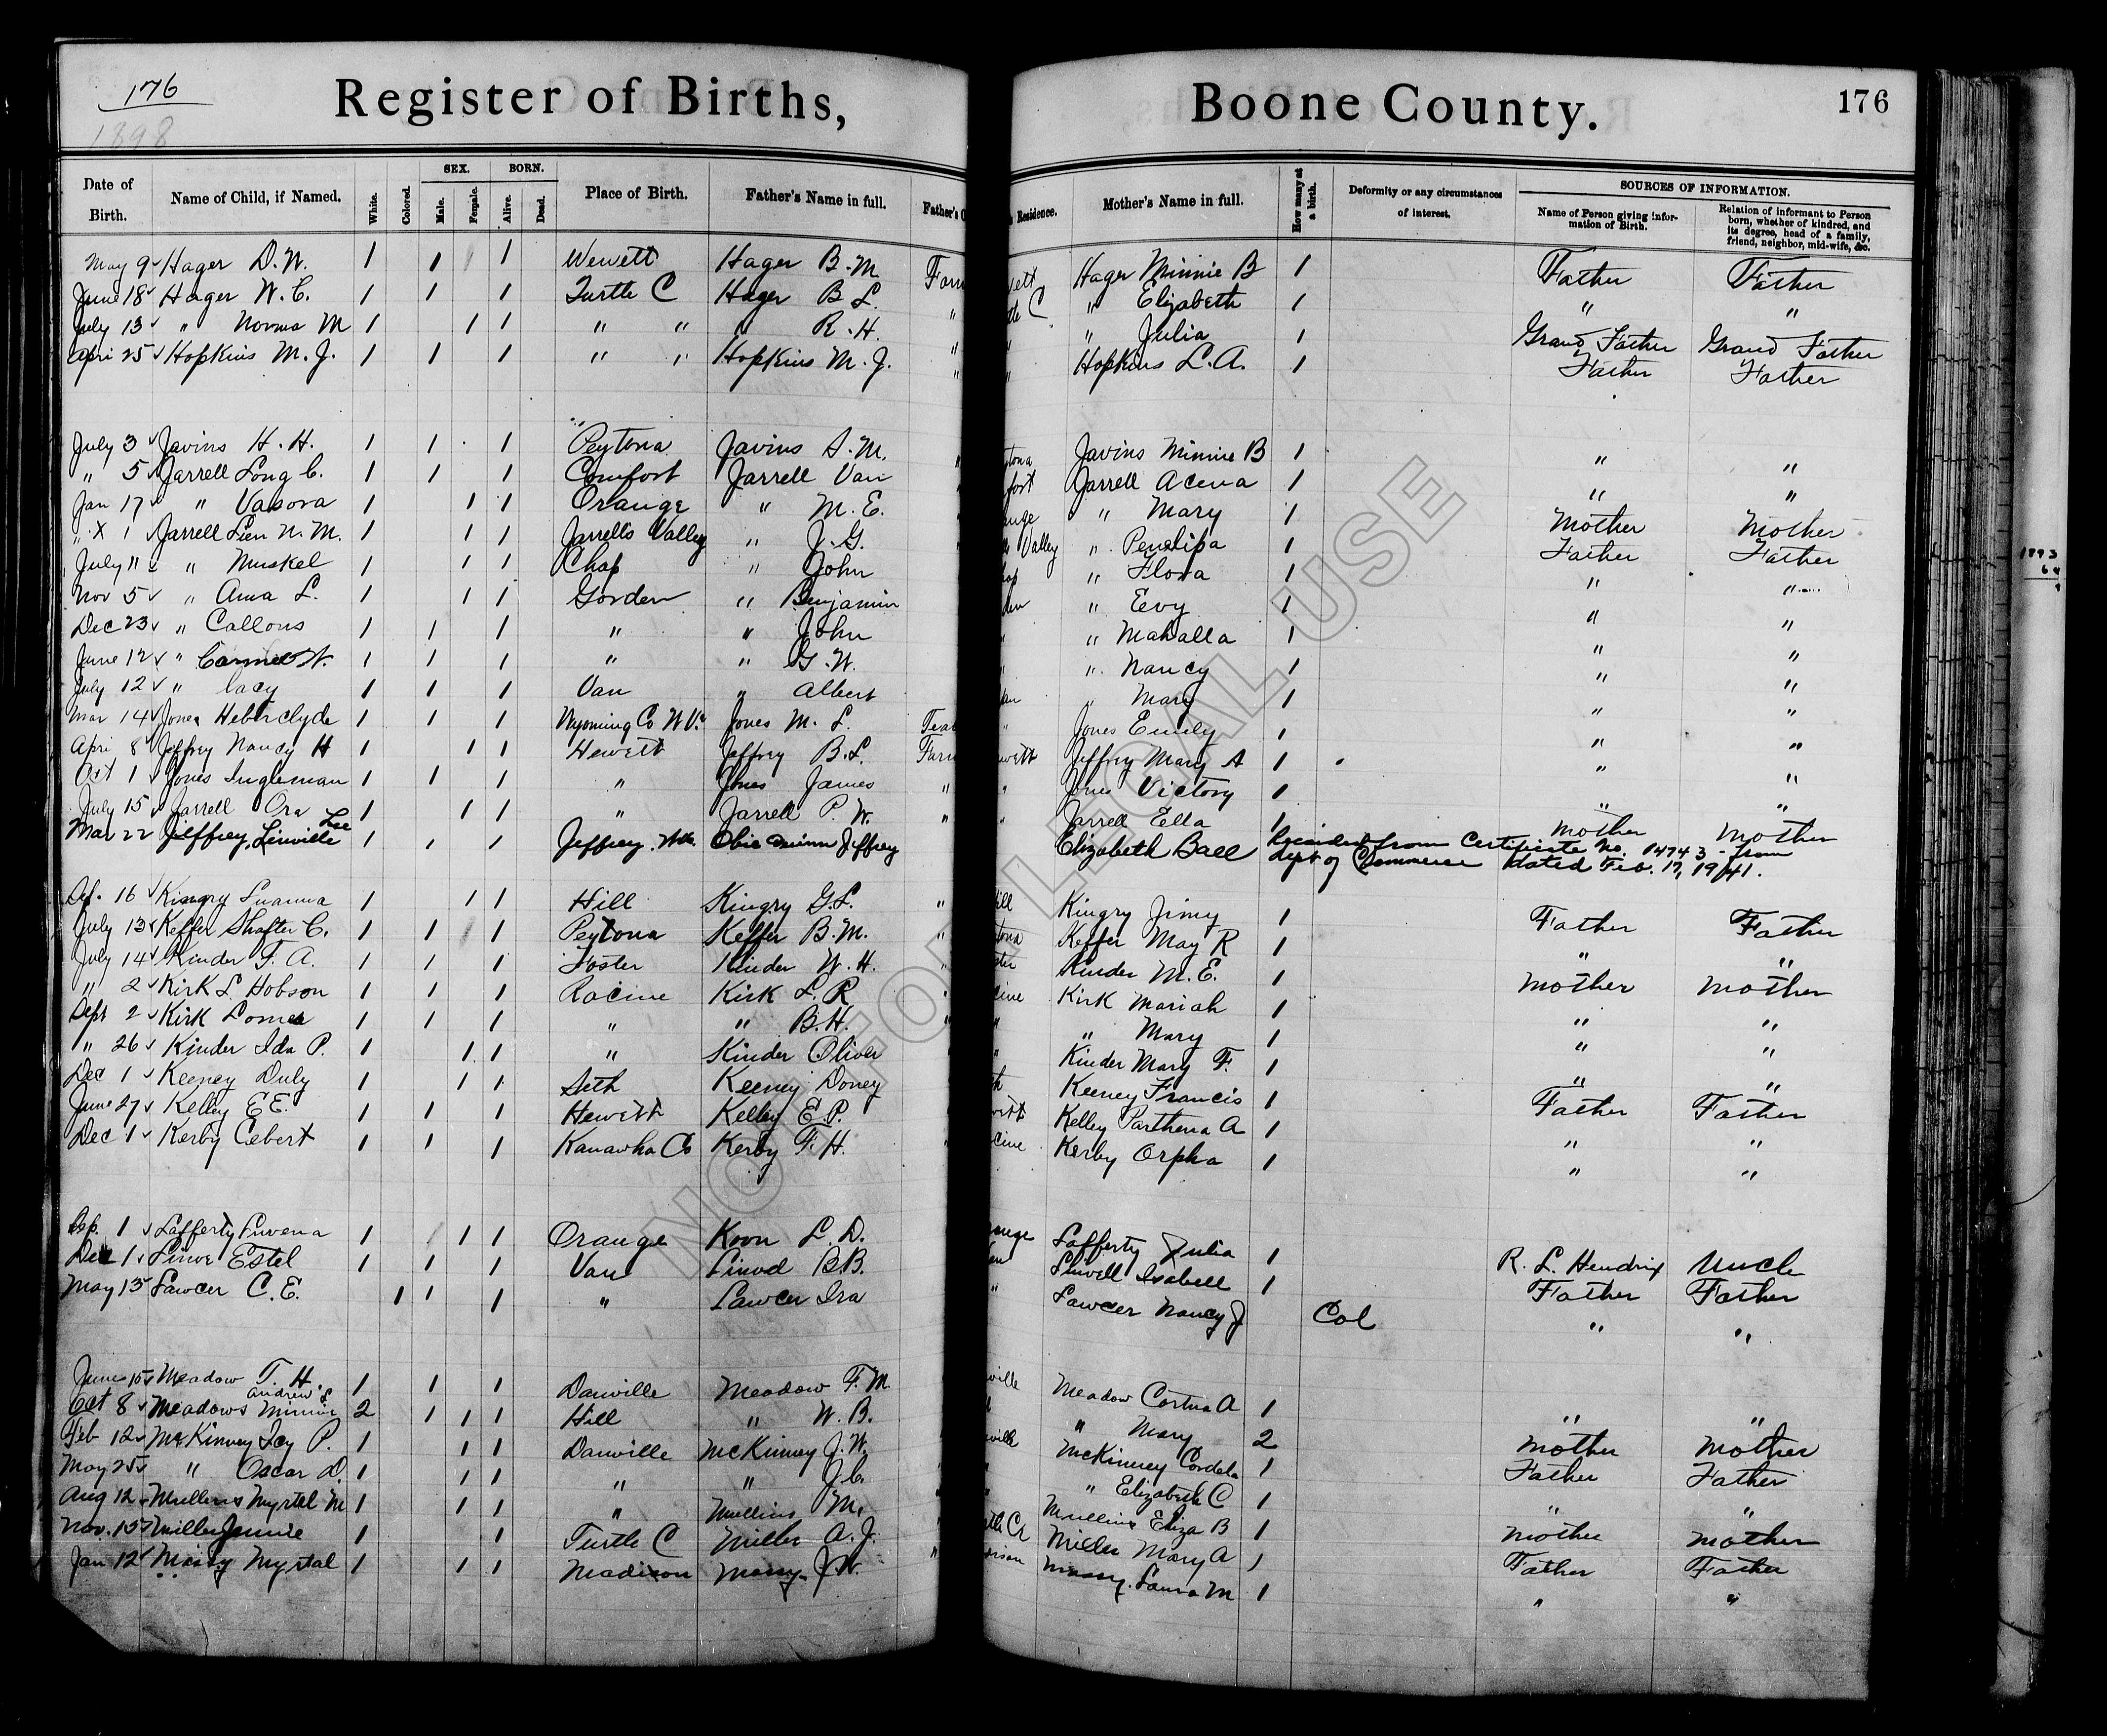 176
1898
Register of Births,
Boone County.
176
Date of Birth. Name of Child, if Named. White. Colored. SEX. Male. Female. BORN. Alive. Dead. Place of Birth. Father's Name in full. Father's
Residence. Mother's Name in full. How many at a birth. Deformity or any circumstances of interest. SOURCES OF INFORMATION. Name of Person giving information of Birth. Relation of informant to Person born, whether of kindred, and its degree, head of a family, friend, neighbor, mid-wife, &c.
May 9 Hager D. W. 1 1 1 Wewett Hager B. M. Hager Minnie B 1 Father Father
June 18 Hager W. C. 1 1 1 Turtle C Hager B L. " " Elizabeth 1 " "
July 13 " Norma M 1 1 1 " " " R. H. " Julia 1 Grand Father Grand Father
Apri 25 Hopkins M. J. 1 1 1 " " Hopkins M. J. " Hopkins L. A. 1 Father Father
July 3 Javins H. H. 1 1 1 Peytona Javins S. M. Javins Minnie B 1 " "
" 5 Jarrell Long C. 1 1 1 Comfort Jarrell Van Jarrell Acena 1 " "
Jan 17 " Vasora 1 1 1 Orange " M. E. " Mary 1 Mother Mother
" 1 Jarrell N. M. 1 1 1 Jarrells Valley " J. G. Valley " Penelipa 1 Father Father
July 11 " Muskel 1 1 1 Chap " John " Flora 1 " "
Nov 5 " Ama L. 1 1 1 Gorden " Benjamin " Evy 1 " "
Dec 23 " Callons 1 1 1 " " John " Mahalla 1 " "
June 12 " W. 1 1 1 " " G. W. " Nancy 1 " "
July 12 " Lacy 1 1 1 Van " Albert " Mary 1 " "
Mar 14 Jones Heber clyde 1 1 1 Wyoming Co W Va Jones M. L. Jones Emily 1 " "
Apri 8 Jeffrey Nancy H 1 1 1 Hewett Jeffrey B. L. Jeffrey Mary A 1 " "
Oct 1 Jones Ingleman 1 1 1 " Jones James " Jones Victory 1 " "
July 15 Jarrell Ora 1 1 1 " Jarrell P. W. " Jarrell Ella 1 Mother Mother
Mar 22 Jeffrey, Linville Lee 1 1 1 Jeffrey, Obie Quinn Jeffrey Elizabeth Ball Recorded from Certificate No. 14743 from
Dept of Commerce dated Feb. 17, 1941.
16 Kingry Luanna 1 1 1 Hill Kingry G. L. " Kingry Jimy 1 Father Father
July 13 Keffer Shafter C. 1 1 1 Peytona Keffer B. M. " Keffer May R 1 " "
July 14 Kinder F. A. 1 1 1 Foster Kinder W. H. " Kinder M. E. 1 Mother Mother
" 2 Kirk L Hobson 1 1 1 Racine Kirk L. R. Kirk Mariah 1 " "
Sept 2 Kirk 1 1 1 " " B. H. " Mary 1 " "
" 26 Kinder Ida P. 1 1 1 " Kinder Oliver Kinder Mary F. 1 " "
Dec 1 Keeney Duly 1 1 1 Seth Keeney Doney Keeney Francis 1 Father Father
June 27 Kelley E E. 1 1 1 Hewett Kelley E. P. Kelley Parthena A 1 " "
Dec 1 Kerby Cebert 1 1 1 Kanawha Co Kerby F. H. Kerby Orpha 1 " "
Sep. 1 Lafferty Luvena 1 1 1 Orange Koon L. D. Lafferty Julia 1 R. L. Hendrix Uncle
Dec 1 Estel 1 1 1 Van B B. Isabell 1 Father Father
May 13 Lawcer C. E. 1 1 1 " Lawcer Ira " Lawcer Nancy J Col " "
June 15 Meadow T. H. 1 1 1 Danville Meadow F. M. Meadow A 1 " "
Oct 8 Meadows Andrew L Minnie 2 1 1 1 Hill " W. B. " Mary 2 Mother Mother
Feb 12 McKinney Icy P. 1 1 1 Danville McKinney J. W. McKinney Cordela 1 Father Father
May 25 " Oscar D. 1 1 1 " " J. C. " Elizabeth C 1 " "
Aug 12 Mullens Myrtal M 1 1 1 " Mullins M. Mullins Eliza B 1 Mother Mother
Nov. 15 Miller Jennie 1 1 Turtle C Miller A. J. Miller Mary A 1 Father Father
Jan 12 Massy Myrtal 1 1 1 Madison Massy J W. " Massy Laura M 1 " "
NOT FOR LEGAL USE